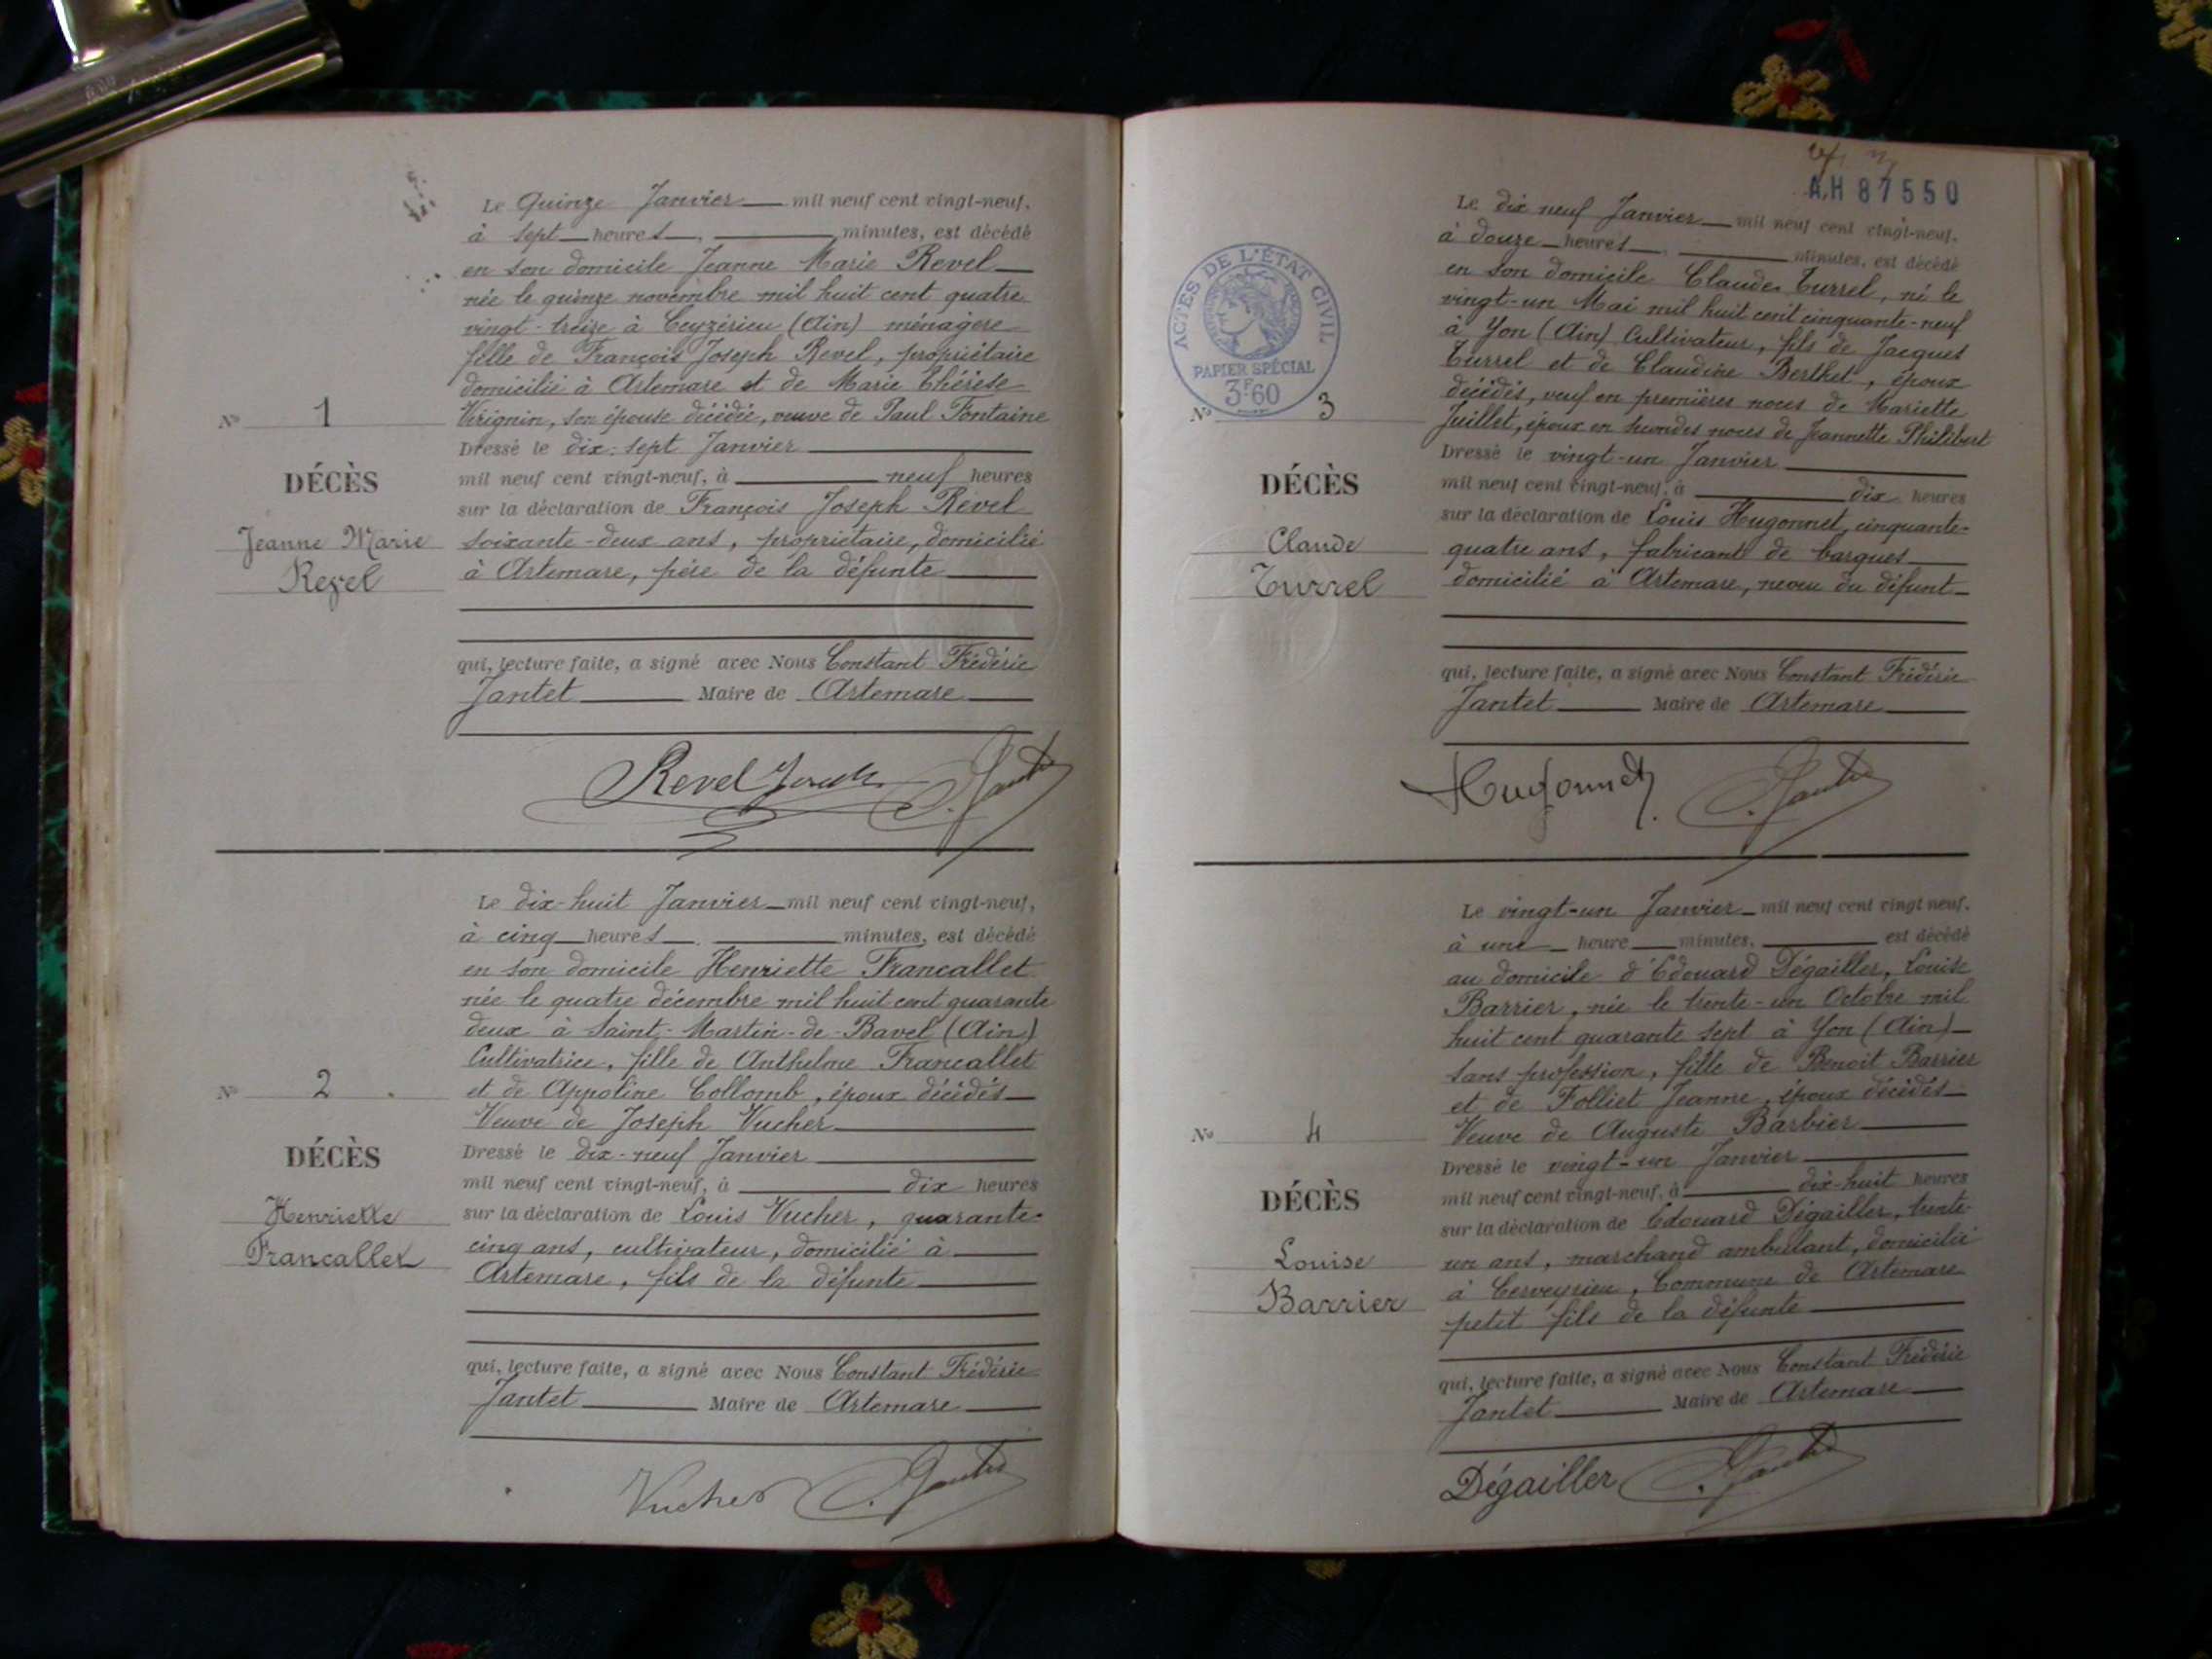 Le Quinze Janvier mil neuf cent vingt-neuf,
à sept heures, minutes, est décédé
en son domicile Jeanne Marie Revel
née le quinze novembre mil huit cent quatre
vingt-treize à Ceyzérieu (Ain) ménagère
fille de François Joseph Revel, propriétaire
domicilié à Artemare et de Marie Thérèse
Virignin, son épouse décédée, veuve de Paul Fontaine
Nº 1
Dressé le dix-sept Janvier
mil neuf cent vingt-neuf, à neuf heures
DÉCÈS
sur la déclaration de François Joseph Revel
Jeanne Marie
Revel
soixante-deux ans, propriétaire, domicilié
à Artemare, père de la défunte
qui, lecture faite, a signé avec Nous Constant Frédéric
Jantet Maire de Artemare
Revel Joseph C. Jantet
Le dix-huit Janvier mil neuf cent vingt-neuf,
à cinq heures, minutes, est décédé
en son domicile Henriette Francallet
née le quatre décembre mil huit cent quarante
deux à Saint-Martin-de-Bavel (Ain)
Cultivatrice, fille de Anthelme Francallet
et de Appoline Collomb, époux décédés
Veuve de Joseph Vucher
Nº 2
DÉCÈS
Henriette
Francallet
Dressé le dix-neuf Janvier
mil neuf cent vingt-neuf, à dix heures
sur la déclaration de Louis Vucher, quarante-
cinq ans, cultivateur, domicilié à
Artemare, fils de la défunte
qui, lecture faite, a signé avec Nous Constant Frédéric
Jantet Maire de Artemare
Vucher C. Jantet
A.H 87550
ACTES DE L'ÉTAT CIVIL
PAPIER SPÉCIAL
3F60
Le dix neuf Janvier mil neuf cent vingt-neuf,
à douze heures, minutes, est décédé
en son domicile Claude Turrel, né le
vingt-un Mai mil huit cent cinquante-neuf
à Yon (Ain) Cultivateur, fils de Jacques
Turrel et de Claudine Berthet, époux
décédés, veuf en premières noces de Mariette
Juillet, époux en secondes noces de Jeannette Philibert
Nº 3
DÉCÈS
Claude
Turrel
Dressé le vingt-un Janvier
mil neuf cent vingt-neuf, à dix heures
sur la déclaration de Louis Hugonnet, cinquante-
quatre ans, fabricant de barques
domicilié à Artemare, neveu du défunt
qui, lecture faite, a signé avec Nous Constant Frédéric
Jantet Maire de Artemare
Hugonnet C. Jantet
Le vingt-un Janvier mil neuf cent vingt neuf,
à une heure minutes, est décédé
au domicile d'Edouard Dégailler, Louise
Barrier, née le trente-un Octobre mil
huit cent quarante sept à Yon (Ain)
sans profession, fille de Benoit Barrier
et de Folliet Jeanne, époux décédés
Veuve de Auguste Barbier
Nº 4
DÉCÈS
Louise
Barrier
Dressé le vingt-un Janvier
mil neuf cent vingt-neuf, à dix-huit heures
sur la déclaration de Edouard Dégailler, trente-
un ans, marchand ambulant, domicilié
à Cerveyrieu, Commune de Artemare
petit fils de la défunte
qui, lecture faite, a signé avec Nous Constant Frédéric
Jantet Maire de Artemare
Dégailler C. Jantet